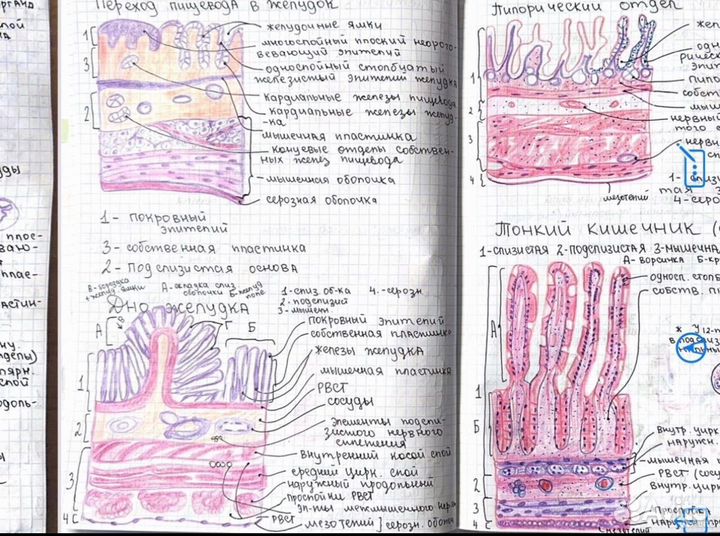 Переход пищевода в желудок
желудочные ямки
многослойный плоский неорого-
вевающий эпителий
однослойный столбчатый
железистый эпителий желудка
Кардиальные железы пищевода
кардиальные железы желуд-
-ка
мышечная пластинка
концевые отделы собствен-
ных желез пищевода
мышечная оболочка
серозная оболочка
1
3
2
1- покровный
эпителий
3- собственная пластинка
2- Подслизистая основа
Дно желудка
А-складка слиз.
оболочки Б-желуд
поле
1-слиз. об-ка 4. -серозн.
2- подслизист
3-мышечн
А
В
Г
Б
покровный эпителий
собственная пластинка
железы желудка
мышечная пластинка
РВСТ
сосуды
элементы подсли-
зистого нервного
сплетения
Внутренний косой слой
средний цирк. слой
наружный продольный
прослойки РВСТ
эл-ты межмышечного нерв
РВСТ
мезотелий серозн. оболоч
1
2
3
4
Пилорический отдел
1
2
3
4
мезотелий
4-сероз
Тонкий кишечник
1-слизистая 2-подслизистая 3-мышечная
А- ворсинка Б-кр
односл. столб
собств. пл
А
1
Б
2
3
4
Внутр. цирк
наружн.
мышечная п
РВСТ (сосу
Внутр. цирк
Прослойк
мезотелий